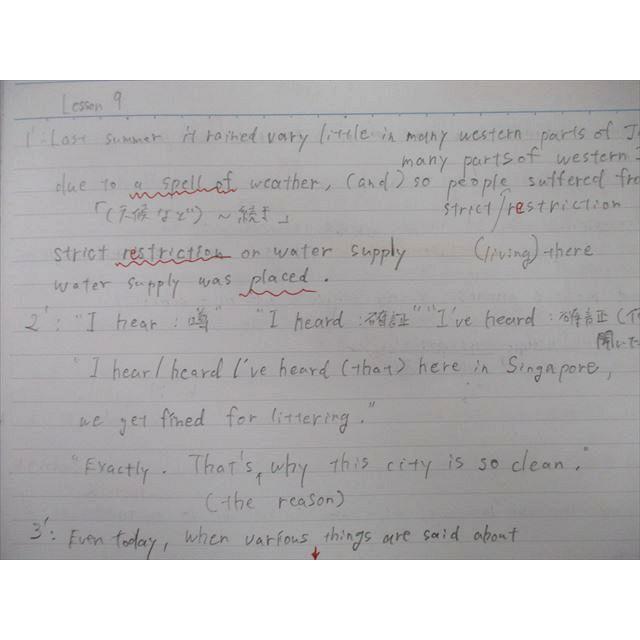 Lesson 9
1': Last summer it rained vary little in many western parts of
many parts of western
due to a spell of weather, (and) so people suffered from
「(天候など) ~続き」 strict/restriction
strict restriction on water supply (living) there
water supply was placed.
2': "I hear : 噂" "I heard : 確証" "I've heard : 確証(
聞いた
"I hear/heard/I've heard (that) here in Singapore,
we get fined for littering."
"Exactly. That's why this city is so clean."
(the reason)
3': Even today, when various things are said about